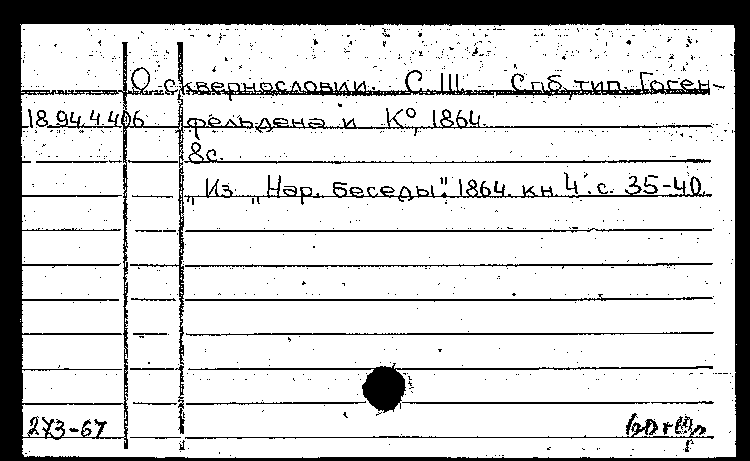 О сквернословии. С. Ш. Спб, тип. Гоген-
18.94.4.406 фельдена и К°, 1864.
8с.
„Из „Нар. беседы". 1864. кн. 4. с. 35-40.
273-67